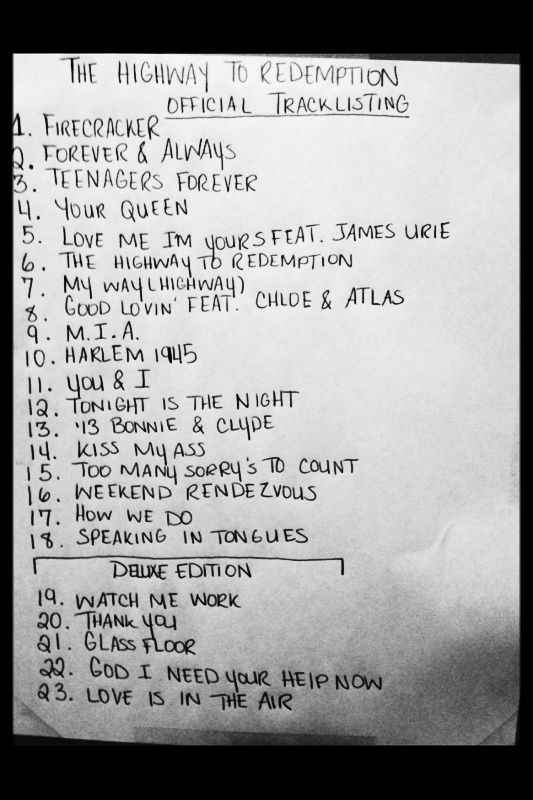 THE HIGHWAY TO REDEMPTION
OFFICIAL TRACKLISTING
1. FIRECRACKER
2. FOREVER & ALWAYS
3. TEENAGERS FOREVER
4. YOUR QUEEN
5. LOVE ME I'M YOURS FEAT. JAMES URIE
6. THE HIGHWAY TO REDEMPTION
7. MY WAY (HIGHWAY)
8. GOOD LOVIN' FEAT. CHLOE & ATLAS
9. M.I.A.
10. HARLEM 1945
11. YOU & I
12. TONIGHT IS THE NIGHT
13. '13 BONNIE & CLYDE
14. KISS MY ASS
15. TOO MANY SORRY'S TO COUNT
16. WEEKEND RENDEZVOUS
17. HOW WE DO
18. SPEAKING IN TONGUES
DELUXE EDITION
19. WATCH ME WORK
20. THANK YOU
21. GLASS FLOOR
22. GOD I NEED YOUR HELP NOW
23. LOVE IS IN THE AIR